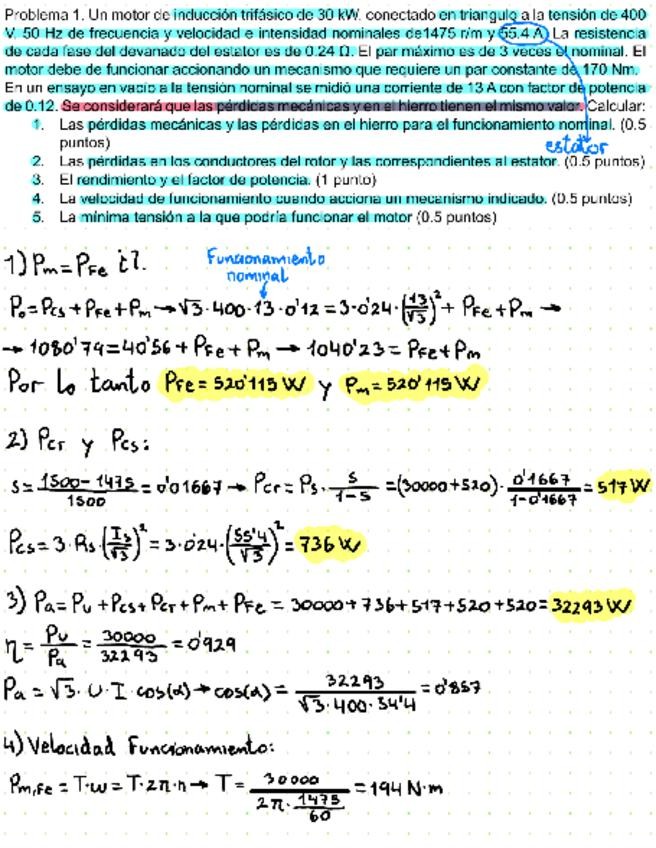 Problema 1. Un motor de inducción trifásico de 30 kW. conectado en triangulo a la tensión de 400
V, 50 Hz de frecuencia y velocidad e intensidad nominales de1475 r/m y 55.4 A. La resistencia
de cada fase del devanado del estator es de 0.24 Ω. El par máximo es de 3 veces el nominal. El
motor debe de funcionar accionando un mecanismo que requiere un par constante de 170 Nm.
En un ensayo en vacío a la tensión nominal se midió una corriente de 13 A con factor de potencia
de 0.12. Se considerará que las pérdidas mecánicas y en el hierro tienen el mismo valor. Calcular:
1. Las pérdidas mecánicas y las pérdidas en el hierro para el funcionamiento nominal. (0.5
puntos)
estator
2. Las pérdidas en los conductores del rotor y las correspondientes al estator. (0.5 puntos)
3. El rendimiento y el factor de potencia. (1 punto)
4. La velocidad de funcionamiento cuando acciona un mecanismo indicado. (0.5 puntos)
5. La mínima tensión a la que podría funcionar el motor (0.5 puntos)
1) Pm=PFe ¿?.
Funcionamiento
nominal
Po=Pcs+PFe+Pm → √3·400·13·0'12=3·0'24·(13/√3)²+ PFe+Pm →
→ 1080'79=40'56+PFe+Pm → 1040'23=PFe+Pm
Por lo tanto PFe=520'115W y Pm=520'115W
2) Pcr y Pcs:
s=1500-1475/1500=0'01667 → Pcr=Ps·s/1-s=(30000+520)·0'1667/1-0'1667=517W
Pcs=3·Rs·(Is/√3)²=3·0'24·(55'4/√3)²=736W
3) Pa=Pu+Pcs+Pcr+Pm+PFe=30000+736+517+520+520=32293W
η=Pu/Pa=30000/32293=0'929
Pa=√3·U·I·cos(α)→cos(α)=32293/√3·400·54'4=0'857
4) Velocidad Funcionamiento:
Pm,Fe=T·ω=T·2π·n→T=30000/2π·1475/60=194N·m